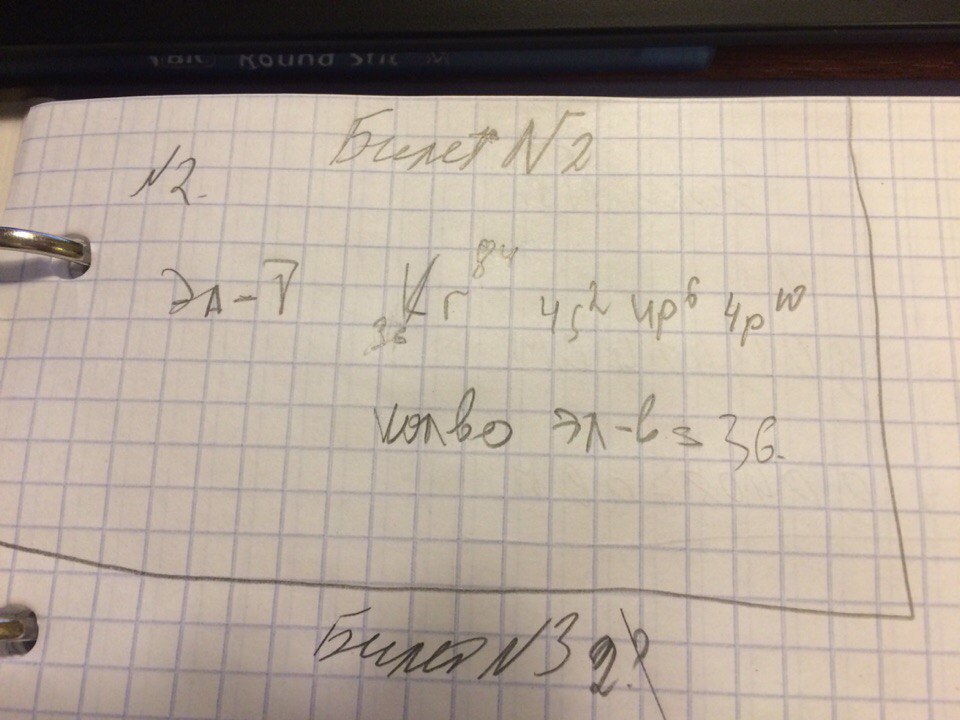 Round Stic M
Билет N2
N2.
Эл-т ₃₆Kr⁸⁴ 4s² 4p⁶ 4p¹⁰
колво эл-в = 36.
Билет N3 2?